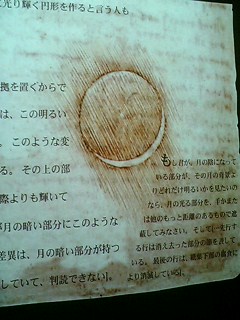 に光り輝く円形を作ると言う人も
拠を置くからで
は、この明るい
。このような変
る。その上の部
際よりも輝いて
が月の暗い部分にこのような
差異は、月の暗い部分が持つ
していて、判読できない]。
もし君が、月の陰になって
いる部分が、その月の背景よ
りどれだけ明るいかを見たいのな
なら、月の光る部分を、手かまた
は他のもっと距離のあるもので遮
蔽してみなさい。そして[一先行す
る行は消え去った部分の節を表して
いる。最後の行は、
より消滅している]。